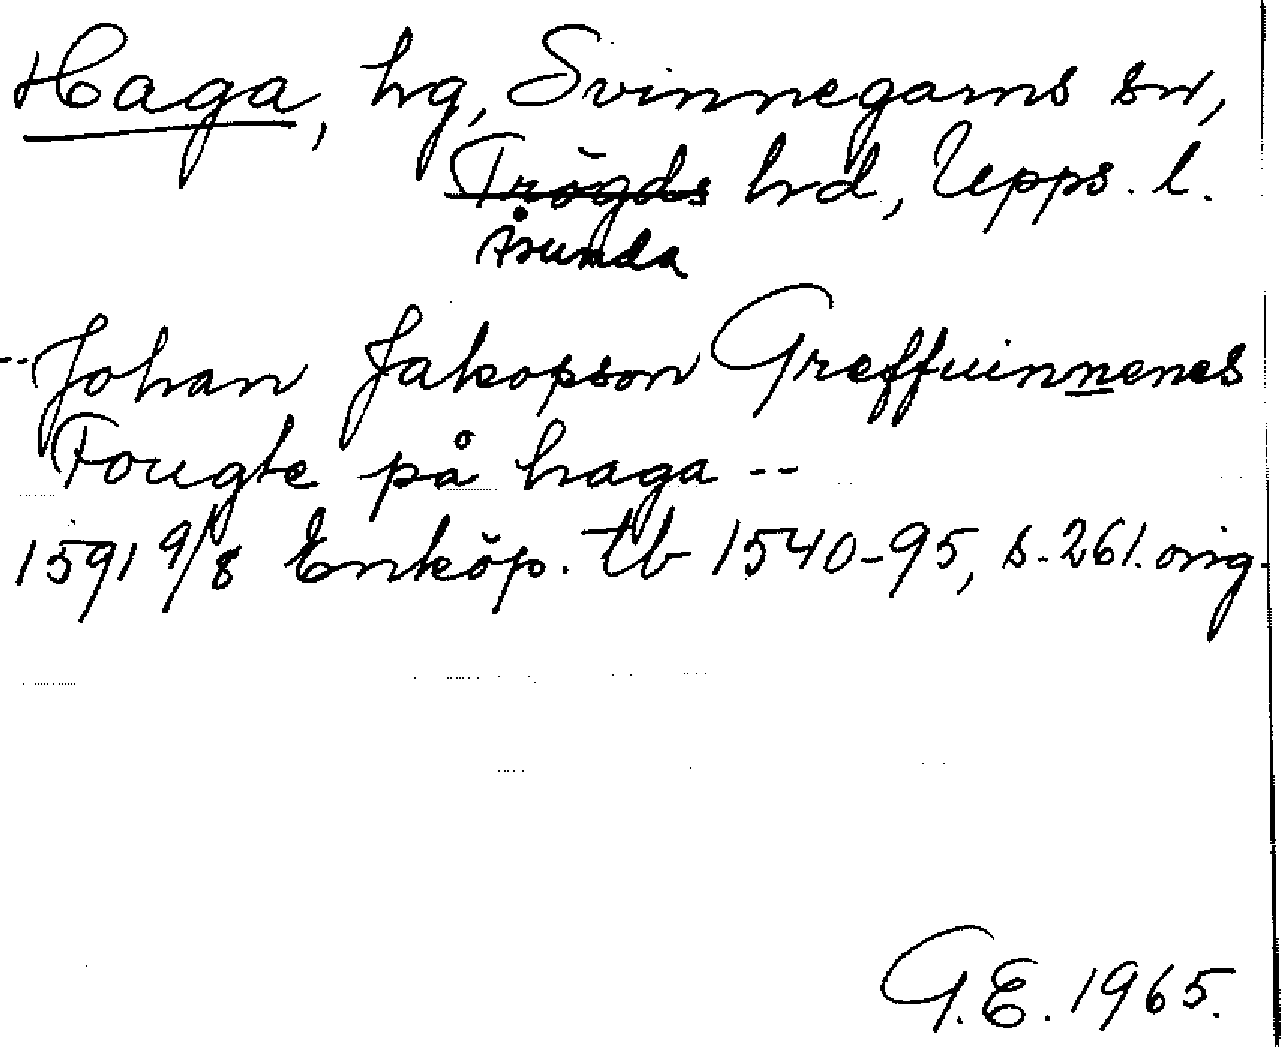 Haga, hg, Svinnegarns sn,
Trögds hrd, Upps. l.
Åsunda
-- Johan Jakopson Greffuinnenes
Fougte på haga --
1591 9/8 Enköp. tb 1540-95, s. 261. orig.
G.E. 1965.